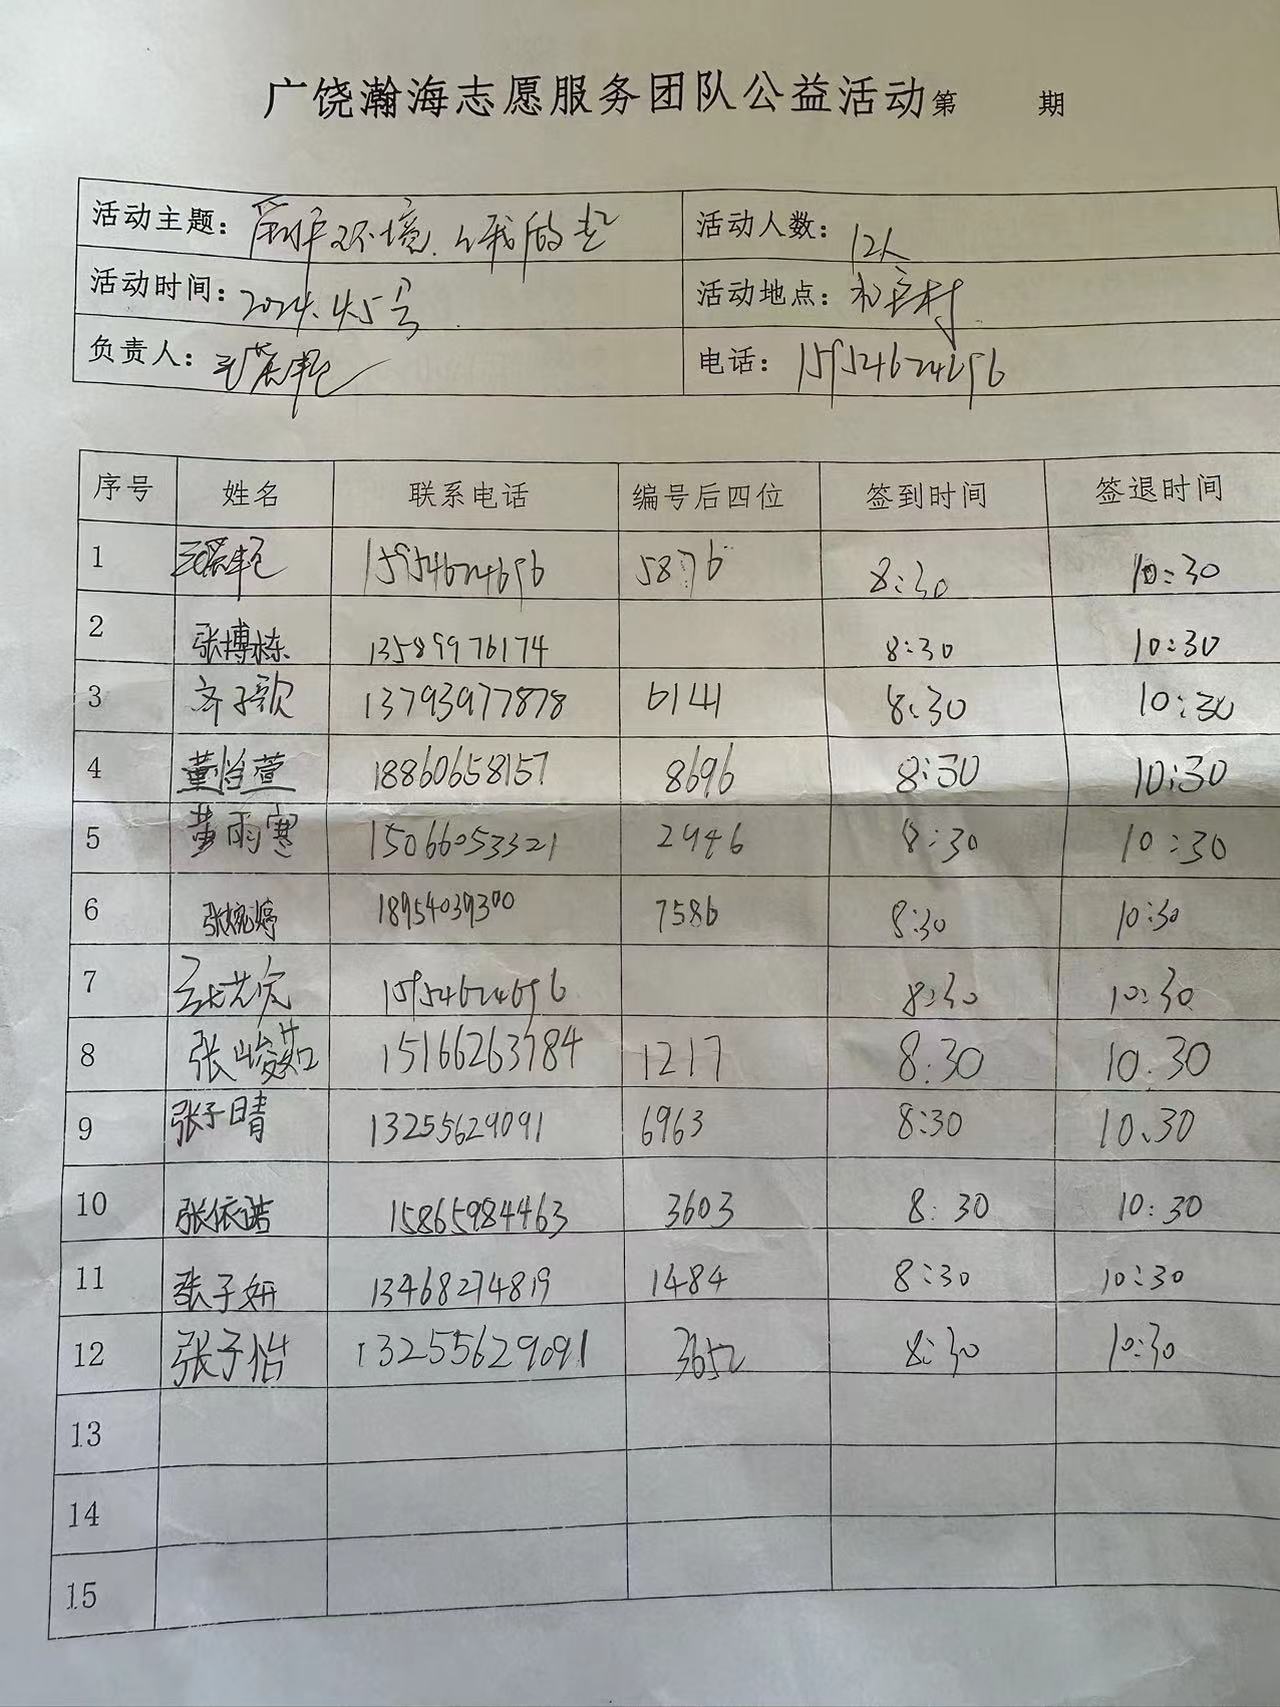 广饶瀚海志愿服务团队公益活动第 期
活动主题: 爱护环境.从我做起 活动人数: 12人
活动时间: 2024.4.5号. 活动地点: 村
负责人: 电话: 15954624696
序号 姓名 联系电话 编号后四位 签到时间 签退时间
1 15954624696 5876 8:30 10:30
2 张搏栋 13589976174 8:30 10:30
3 齐子歌 13793977878 6141 8:30 10:30
4 董怡萱 18860658157 8696 8:30 10:30
5 黄雨寒 15066053321 2946 8:30 10:30
6 张婉婷 18954039300 7586 8:30 10:30
7 15954624696 8:30 10:30
8 张峻茹 15166263784 1217 8:30 10.30
9 张子晴 13255629091 6963 8:30 10.30
10 张依诺 15865984463 3603 8:30 10:30
11 张子妍 13468274819 1484 8:30 10:30
12 张子怡 13255629091 3652 8:30 10:30
13
14
15